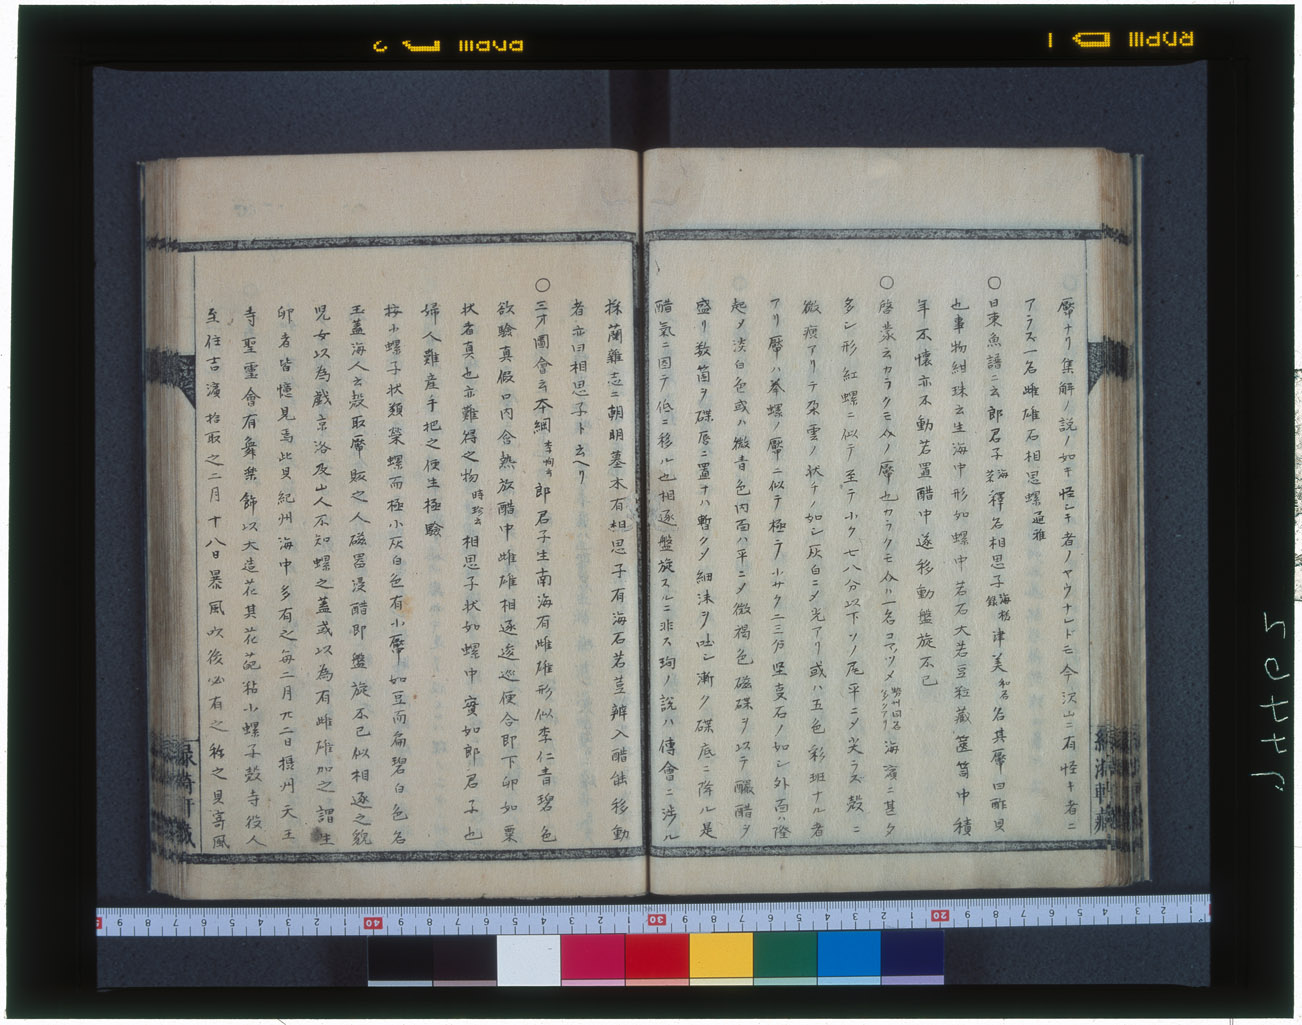 厴ナリ集解ノ説ノ如キ怪シキ者ノヤウナレドモ今次山ニ有怪キ者ニ
アラズ一名雌雄石相思螺通雅
〇日東魚譜ニ云郎君子海若釋名相思子海槎銀津美和名名其厴曰酢貝
也事物紺珠云生海中形如螺中若石大若豆粒藏篋笥中積
年不懷亦不動若置醋中遂移動盤旋不已
〇啓蒙云カラクモ介ノ厴也カラクモ介ハ一名コマツメ海濱ニ甚タ
多シ形紅螺ニ似テ至テ小ク七八分以下ソノ尻平ニメ尖ラズ殻ニ
微瘦アリテ朶雲ノ狀チノ如シ灰白ニメ光アリ或ハ五色彩斑ナル者
アリ厴ハ拳螺ノ厴ニ似テ極テ小サク二三分堅ı石ノ如シ外面ハ隆
起メ淡白色或ハ微青色内面ハ平ニメ微褐色磁碟ヲ以テ釅醋ヲ
盛リ数箇ヲ碟唇ニ置ナハ暫クメ細沫ヲ吐シ漸ク碟底ニ降ル是
醋氣ニ因テ低ニ移ル也相逐盤旋スルニ非ス珣ノ説ハ傳會ニ渉ル
採蘭雜志ニ朝明墓本有相思子有海石若荳辨入醋能移動
者亦曰相思子ト云ヘリ
〇三才圖會云本綱李珣云郎君子生南海有雌雄形似李仁青碧色
欲驗真假口内含熱放醋中雌雄相逐逡巡便合即下卵如粟
狀者真也亦難得之物時珍云相思子狀如螺中實如郎君子也
婦人難産手把之便生極驗
按小螺子狀類榮螺而極小灰白色有小厴如豆而扁碧白色名
玉蓋海人云殻取厴販之人磁器浸醋即盤旋不已似相逐之貌
児女以為戯京洛及山人不知螺之蓋或以為有雌雄加之謂生
卵者皆憶見焉此貝紀州海中多有之毎二月廿二日摂州天王
寺聖霊會有舞楽餝以大造花其花葩粘小螺子殻寺役人
至住吉濱拾取之二月十八日暴風吹後必有之称之貝寄風
緑漪軒蔵
緑漪軒蔵
RDPIII 1
RDPIII 2